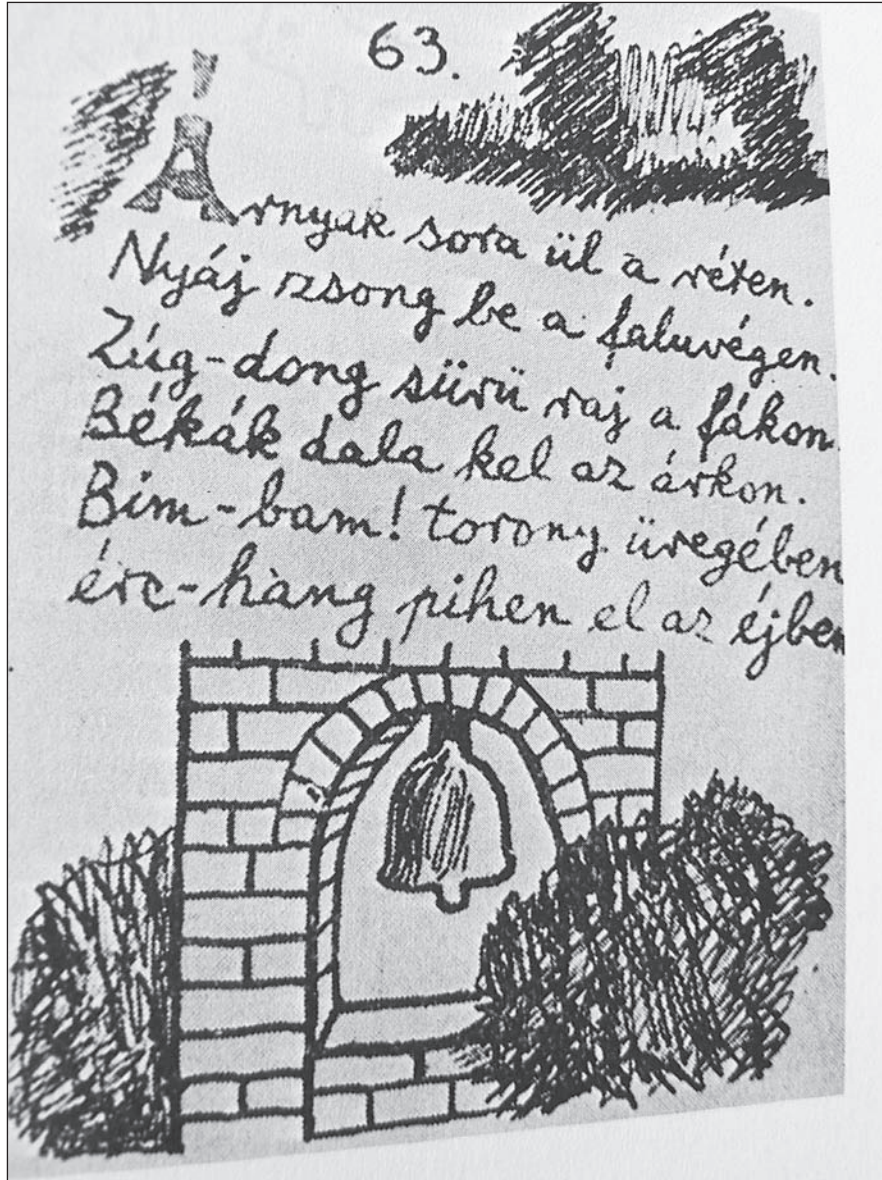 63.
Árnyak sora ül a réten.
Nyáj zsong be a faluvégen.
Zúg-dong sürü raj a fákon.
Békák dala kel az árkon.
Bim-bam! torony üregében
érc-hang pihen el az éjben